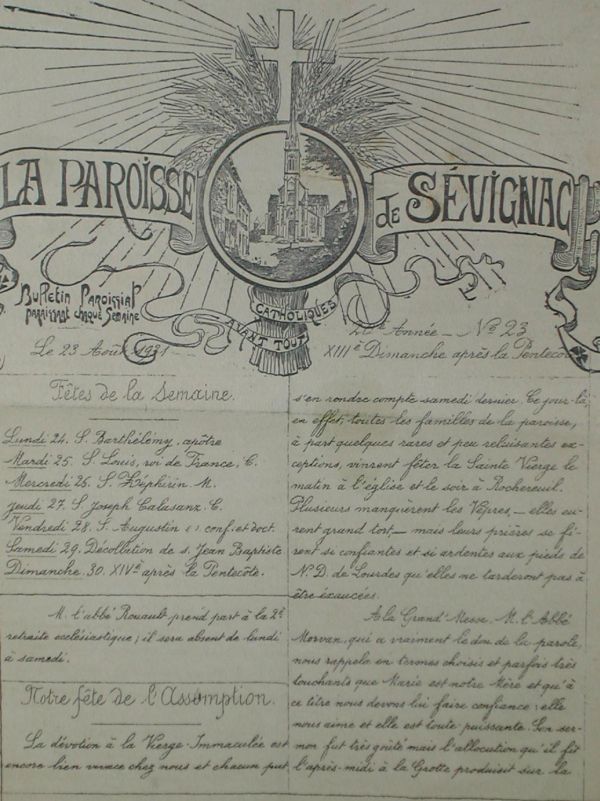 LA PAROISSE
de SÉVIGNAC
CATHOLIQUES
AVANT TOUT
Bulletin Paroissial
paraissant chaque Semaine
Le 23 Août 1931
Année _ No 23
XIIIe Dimanche après la Pentecôte
Fêtes de la Semaine.
Lundi 24. S. Barthélémy, apôtre
Mardi 25. S. Louis, roi de France, C.
Mercredi 26. S. Zéphirin. M.
Jeudi 27. S. Joseph Calasanz. C.
Vendredi 28. S. Augustin : conf. et doct.
Samedi 29. Décollation de s. Jean Baptiste
Dimanche. 30. XIVe après la Pentecôte.
M. l'abbé Rouault prend part à la 2e
retraite ecclésiastique ; il sera absent de lundi
à samedi.
Notre fête de l'Assomption.
La dévotion à la Vierge Immaculée est
encore bien vivace chez nous et chacun put
s'en rendre compte samedi dernier. Ce jour-là,
en effet, toutes les familles de la paroisse,
à part quelques rares et peu reluisantes ex-
ceptions, vinrent fêter la Sainte Vierge le
matin à l'église et le soir à Rochereuil.
Plusieurs manquèrent les Vêpres, — elles eu-
rent grand tort, — mais leurs prières se fi-
rent si confiantes et si ardentes aux pieds de
N. D. de Lourdes qu'elles ne tarderont pas à
être exaucées.
A la Grand'Messe, M. l'Abbé
Morvan, qui a vraiment le don de la parole,
nous rappela en termes choisis et parfois très
touchants que Marie est notre Mère et qu'à
ce titre nous devons lui faire confiance : elle
nous aime et elle est toute puissante. Son ser-
mon fut très goûté mais l'allocution qu'il fit
l'après-midi à la Grotte produisit sur la